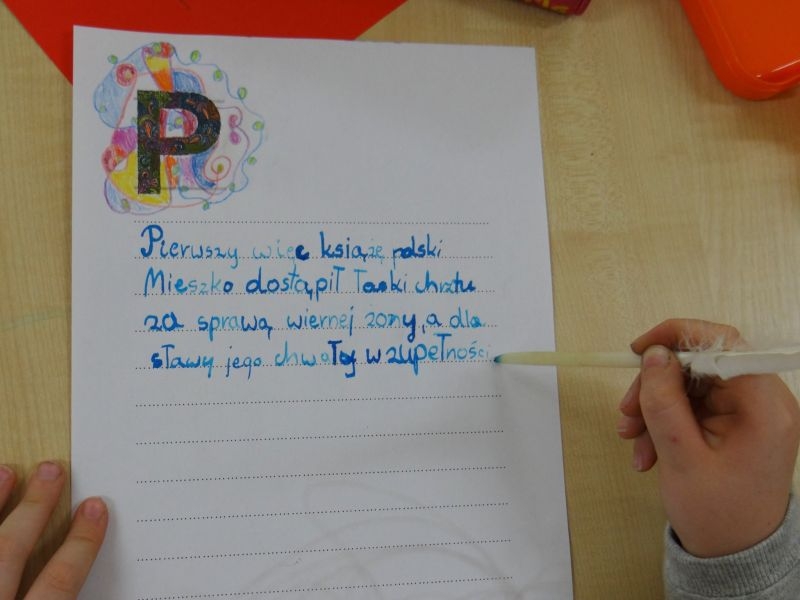 P
Pierwszy więc książę polski
Mieszko dostąpił łaski chrztu
za sprawą wiernej żony, a dla
sławy jego chwały w zupełności